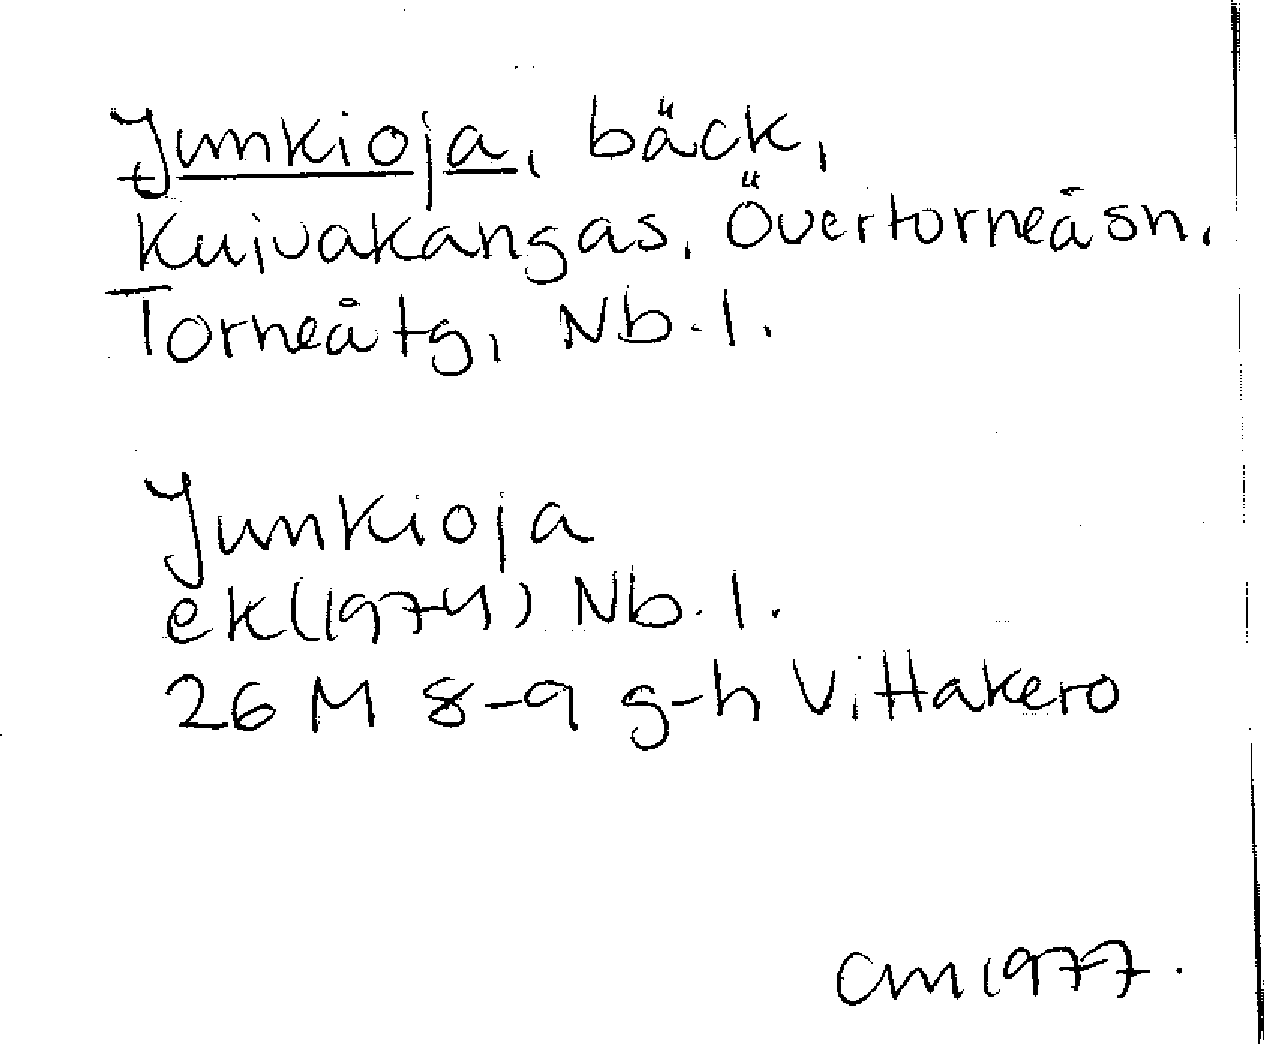 Junkioja, bäck,
Kuivakangas, Övertorneå sn,
Torneå tg, Nb. l.
Junkioja
ek (1974) Nb. l.
26 M 8-9 g-h Vittakero
CM 1977.